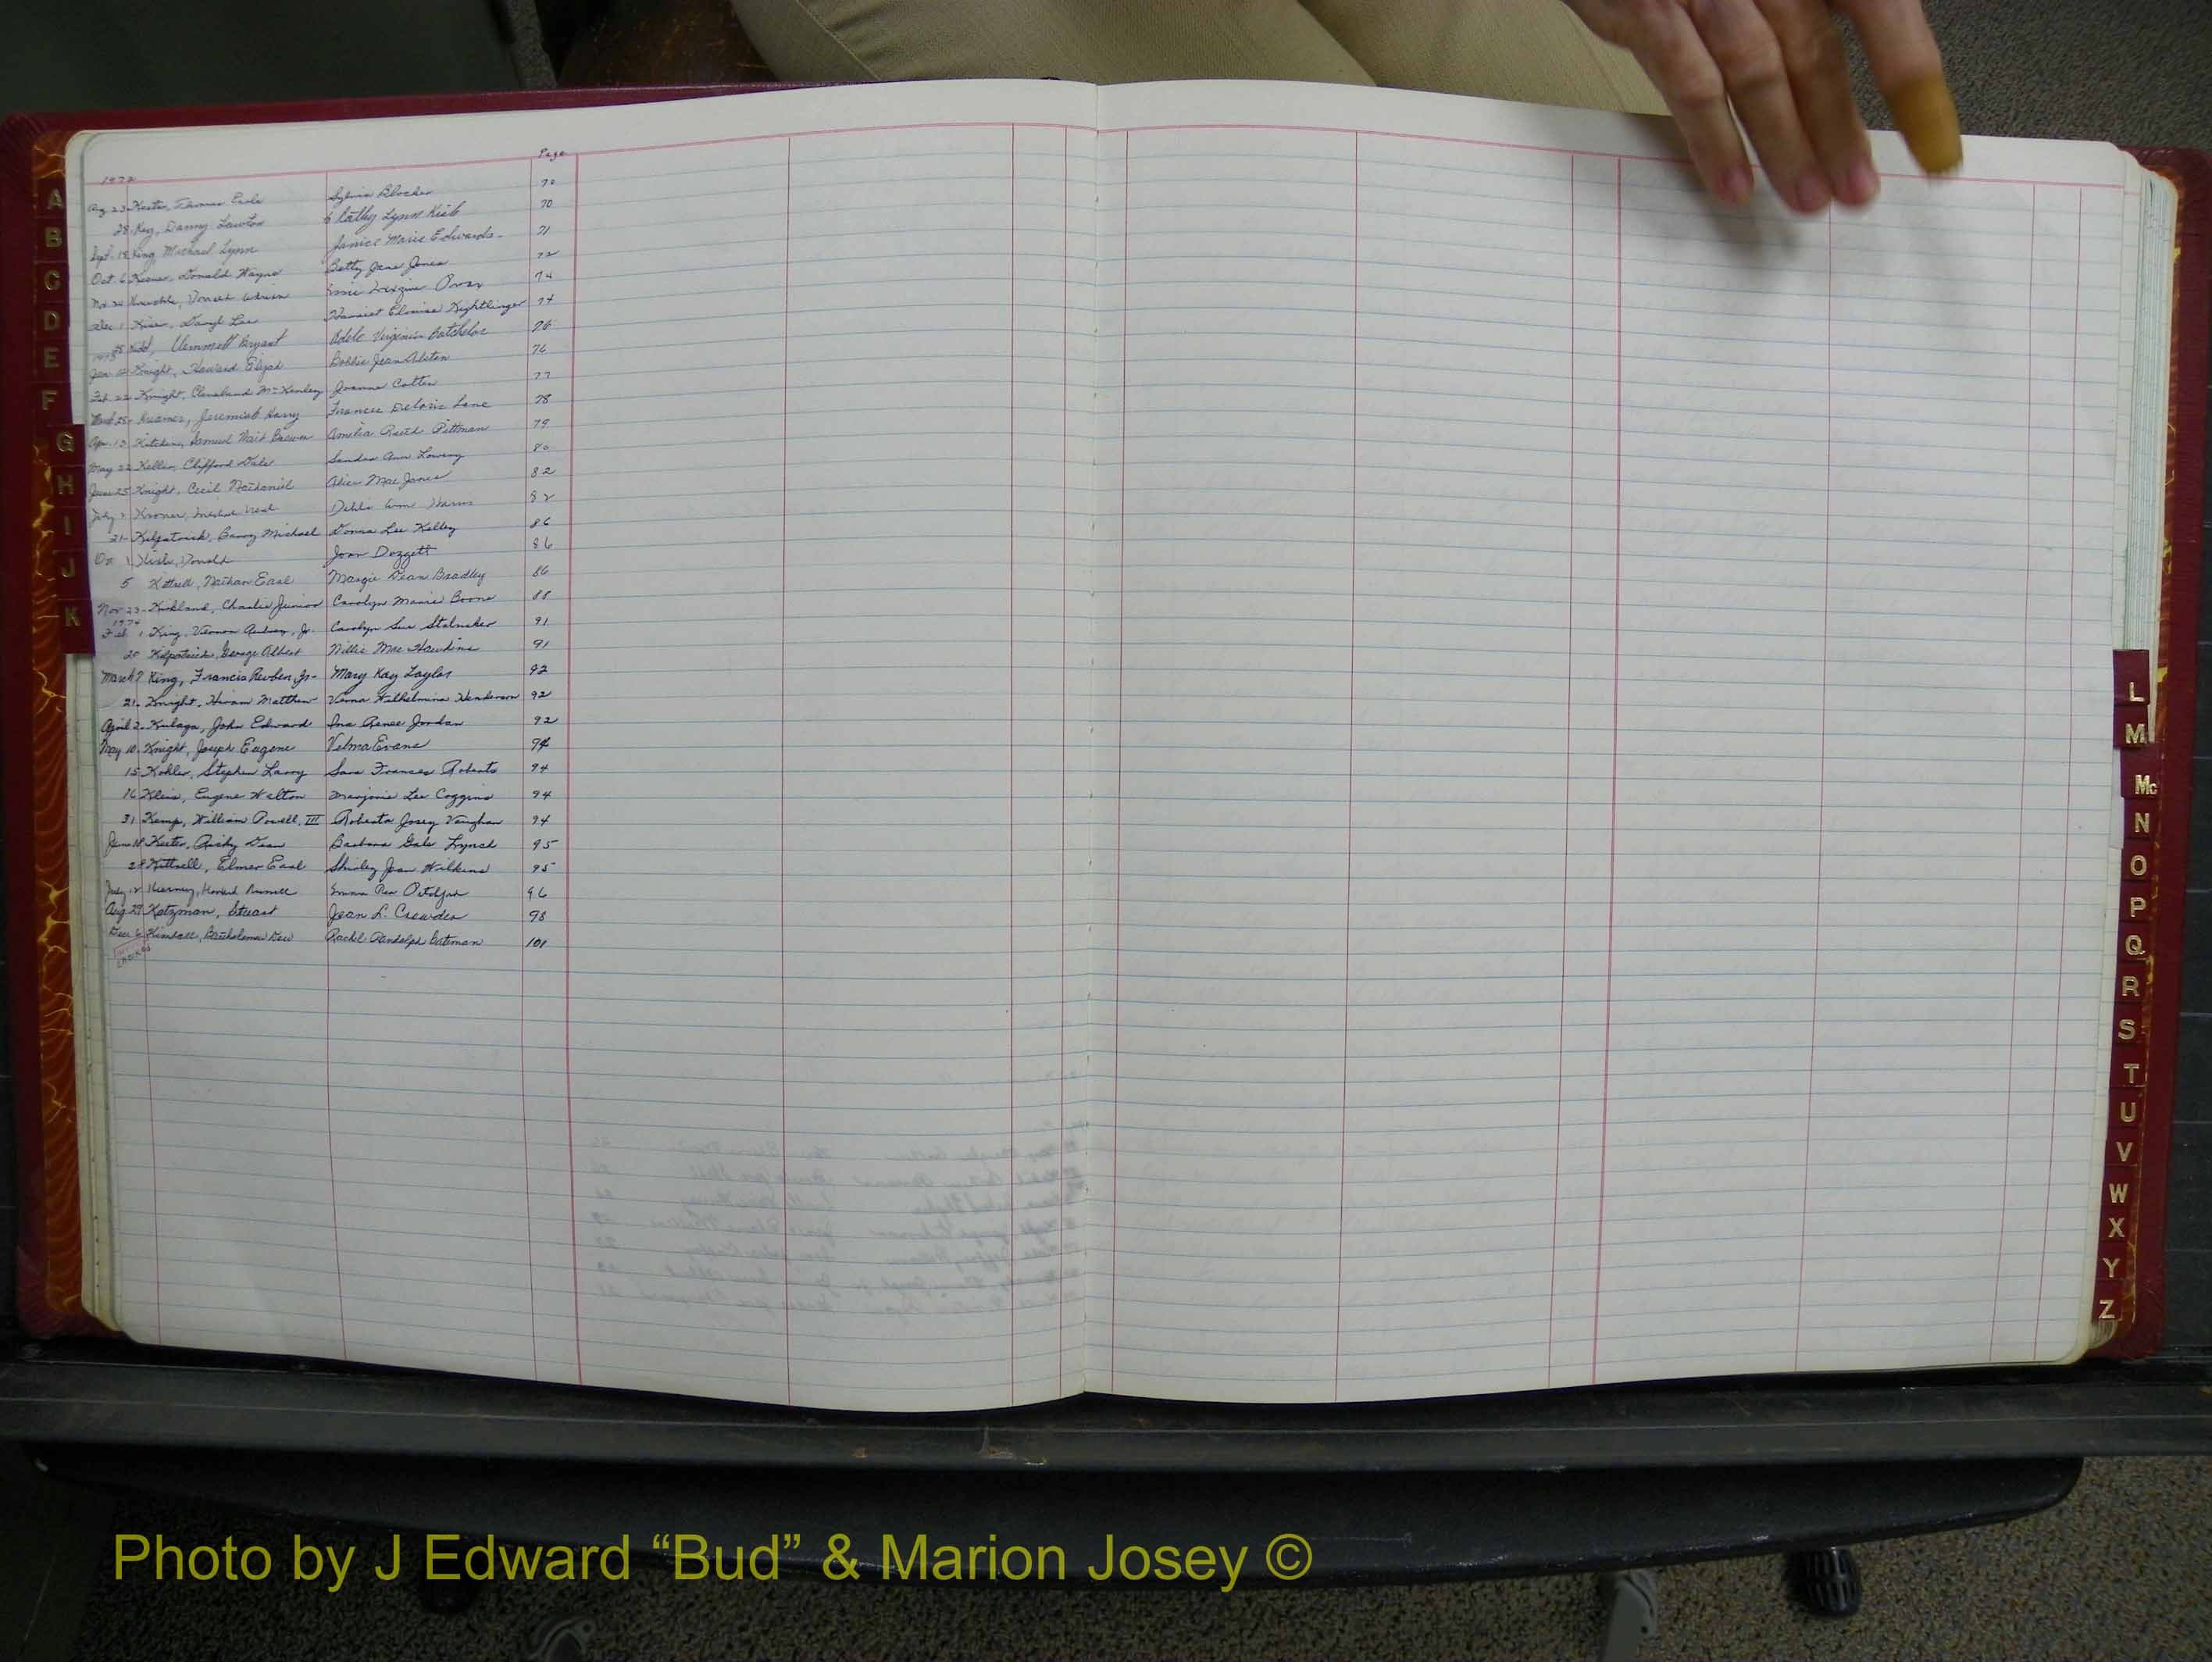 Page
1972
Aug 23 Kester, Thomas Earle Sylvia Blocker 70
28 Key, Danny Lawton Cathy Lynn Kirk 70
Sept. 18 King, Michael Lynn Janice Marie Edwards 71
Oct. 6 Donald Wayne Betty Jane Jones 72
Nov 24 Donald 74
Dec 1 Daryl Lee Harriet Elouise Hightlinger 74
28 Kidd, Clemmett Bryant Adele Virginia Batchelor 76
1973
Jan Knight, Howard Elijah Bobbie Jean Alston 76
Feb 22 Knight, Cleveland McKinley Joanne Cotten 77
March 25 Kramer, Jeremiah Harry Frances Deloris Lane 78
Apr. 13 Kitchin, Samuel Brown Amelia Reid Pittman 79
May 22 Keller, Clifford Dale Sandra Ann Lowery 80
June 25 Knight, Cecil Nathaniel Alice Mae Jones 82
July Debbie Ann Harris 82
21 Kilpatrick, Barry Michael Donna Lee Kelley 86
Oct 1 Donald Joan Doggett 86
5 Kittrell, Nathan Earl Margie Dean Bradley 86
Nov 23 Kirkland, Charlie Junior Carolyn Marie Boone 88
1974
Feb. 1 King, Vernon Jr. Carolyn Sue Stalnaker 91
25 Kilpatrick, George Albert Willie Mae Hawkins 91
March 7 King, Francis Reuben, Jr- Mary Kay Taylor 92
21 Knight, Hiram Matthew Verna Wilhelmina Henderson 92
April 2 Kulaga, John Edward Ina Renee Jordan 92
May 10 Knight, Joseph Eugene Velma Evans 94
15 Kohler, Stephen Larry Sara Frances Roberts 94
16 Klein, Eugene Walton Marjorie Lee Coggins 94
31 Kemp, William Powell, III Roberta Josey Vaughan 94
June 18 Kester, Ricky Dean Barbara Gale Lynch 95
28 Kittrell, Elmer Earl Shirley Jean Wilkins 95
July 12 Kearney, Emma 96
Aug 29 Katzman, Stuart Jean L. Crowder 98
Dec 6 Kimball, Bartholomew Dew Rachel Randolph Bateman 101
A
B
C
D
E
F
G
H
I
J
K
L
M
Mc
N
O
P
Q
R
S
T
U
V
W
X
Y
Z
Photo by J Edward “Bud” & Marion Josey ©